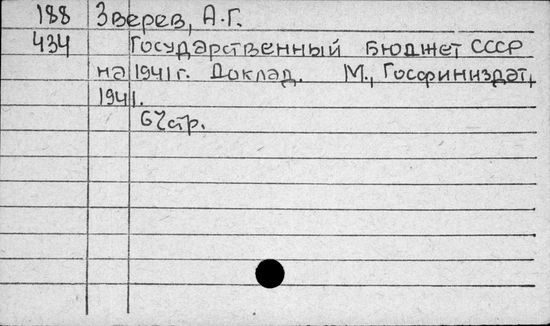 188 Зверев, А.Г.
434 Государственный бюджет СССР
на 1941 г. Доклад. М., Госфиниздат,
1941.
67 стр.